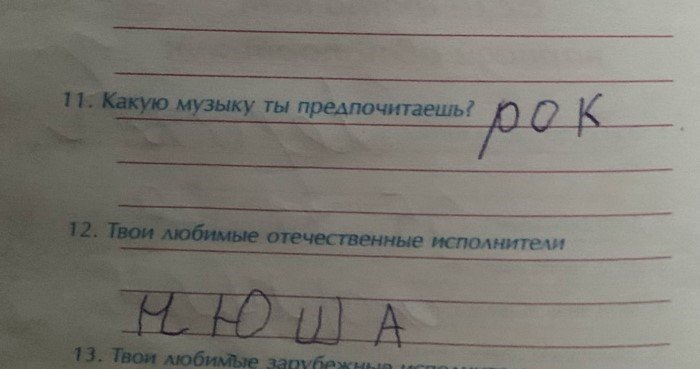 11. Какую музыку ты предпочитаешь? рок
12. Твои любимые отечественные исполнители
НЮША
13. Твои любимые зарубежные